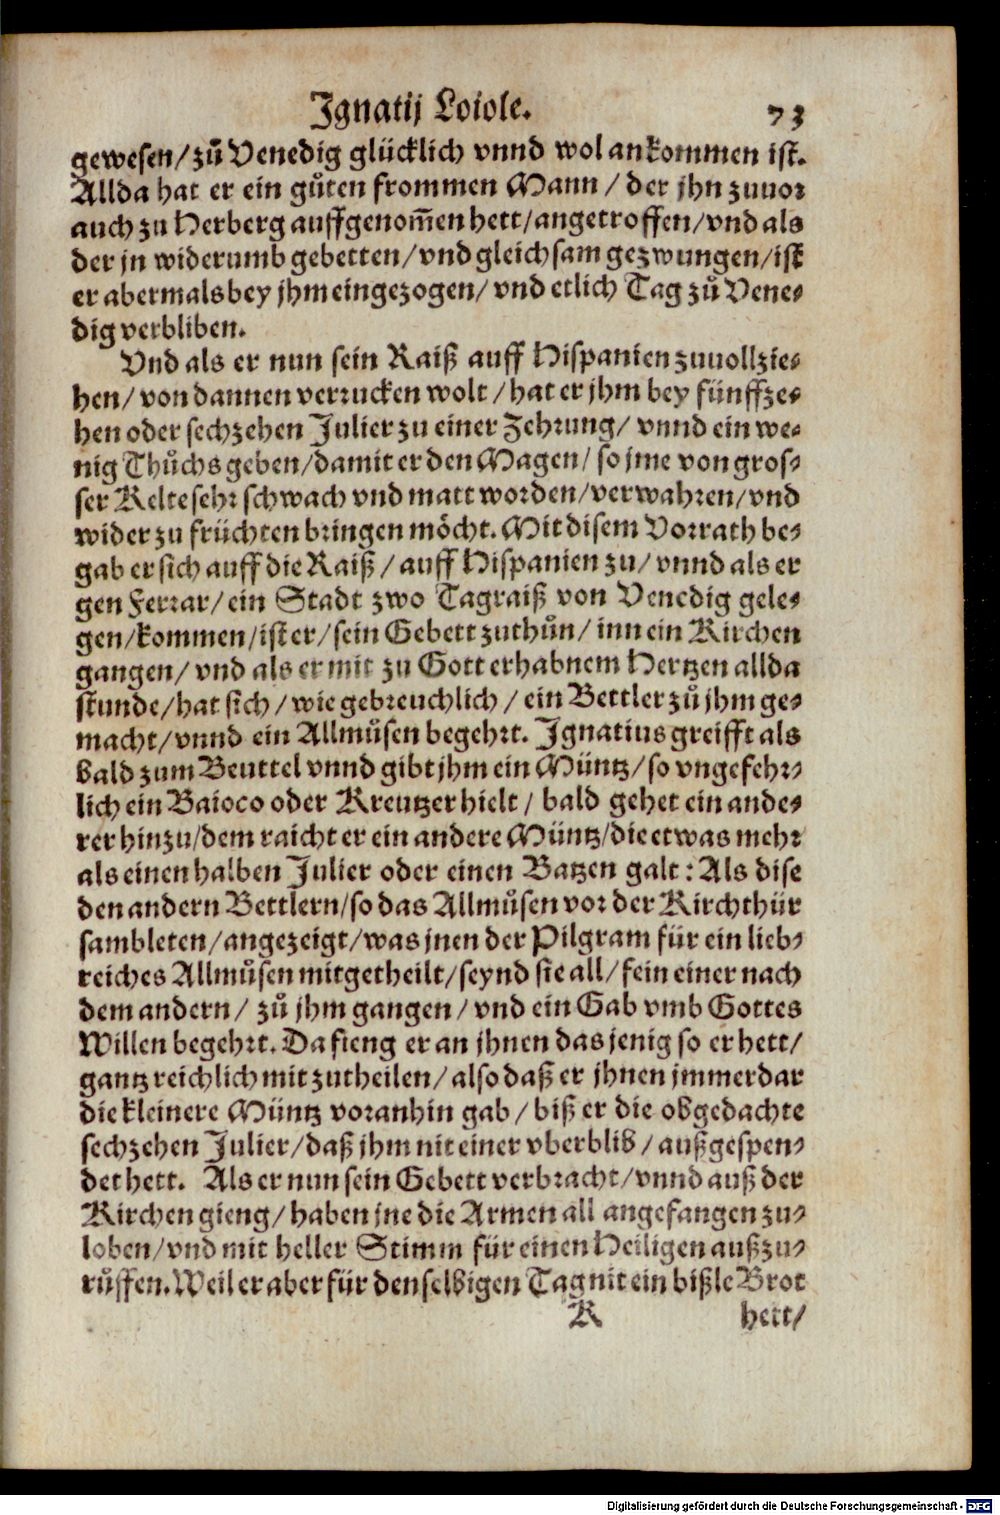 Ignatij Loiole. 73
gewesen/zů Venedig glücklich vnnd wol ankommen ist.
Allda hat er ein gůten frommen Mann / der jhn zuuor
auch zu Herberg auffgenom̄en hett/angetroffen/vnd als
der jn widerumb gebetten/vnd gleichsam gezwungen/ist
er abermals bey jhm eingezogen/ vnd etlich Tag zů Vene-
dig verbliben.
Vnd als er nun sein Raiß auff Hispanien zuuollzie-
hen/ von dannen verrucken wolt / hat er jhm bey fünffze-
hen oder sechzehen Julier zu einer Zehrung/ vnnd ein we-
nig Thůchs geben/damit er den Magen/ so jme von gros-
ser Kelte sehr schwach vnd matt worden/verwahren/vnd
wider zu früchten bringen möcht. Mit disem Vorrath be-
gab er sich auff die Raiß / auff Hispanien zu/ vnnd als er
gen Ferrar/ein Stadt zwo Tagraiß von Venedig gele-
gen/kommen/ist er/sein Gebett zuthůn/ inn ein Kirchen
gangen/ vnd als er mit zu Gott erhabnem Hertzen allda
stunde/hat sich / wie gebreuchlich / ein Bettler zů jhm ge-
macht/vnnd ein Allmůsen begehrt. Ignatius greifft als
bald zum Beuttel vnnd gibt jhm ein Müntz/so vngefehr-
lich ein Baioco oder Kreutzer hielt / bald gehet ein ande-
rer hinzu/dem raicht er ein andere Müntz/die etwas mehr
als einen halben Julier oder einen Batzen galt: Als dise
den andern Bettlern/so das Allmůsen vor der Kirchthür
sambleten/angezeigt/was jnen der Pilgram für ein lieb-
reiches Allmůsen mitgetheilt/seynd sie all/ fein einer nach
dem andern/ zů jhm gangen/ vnd ein Gab vmb Gottes
Willen begehrt. Da fieng er an jhnen das jenig so er hett/
gantz reichlich mit zutheilen/ also daß er jhnen jmmerdar
die kleinere Müntz voranhin gab/ biß er die obgedachte
sechzehen Julier/daß jhm nit einer vberblib/ außgespen-
det hett. Als er nun sein Gebett verbracht/vnnd auß der
Kirchen gieng/ haben jne die Armen all angefangen zu-
loben/vnd mit heller Stimm für einen Heiligen außzu-
růffen. Weil er aber für denselbigen Tag nit ein bißle Brot
K hett/
Digitalisierung gefördert durch die Deutsche Forschungsgemeinschaft - DFG